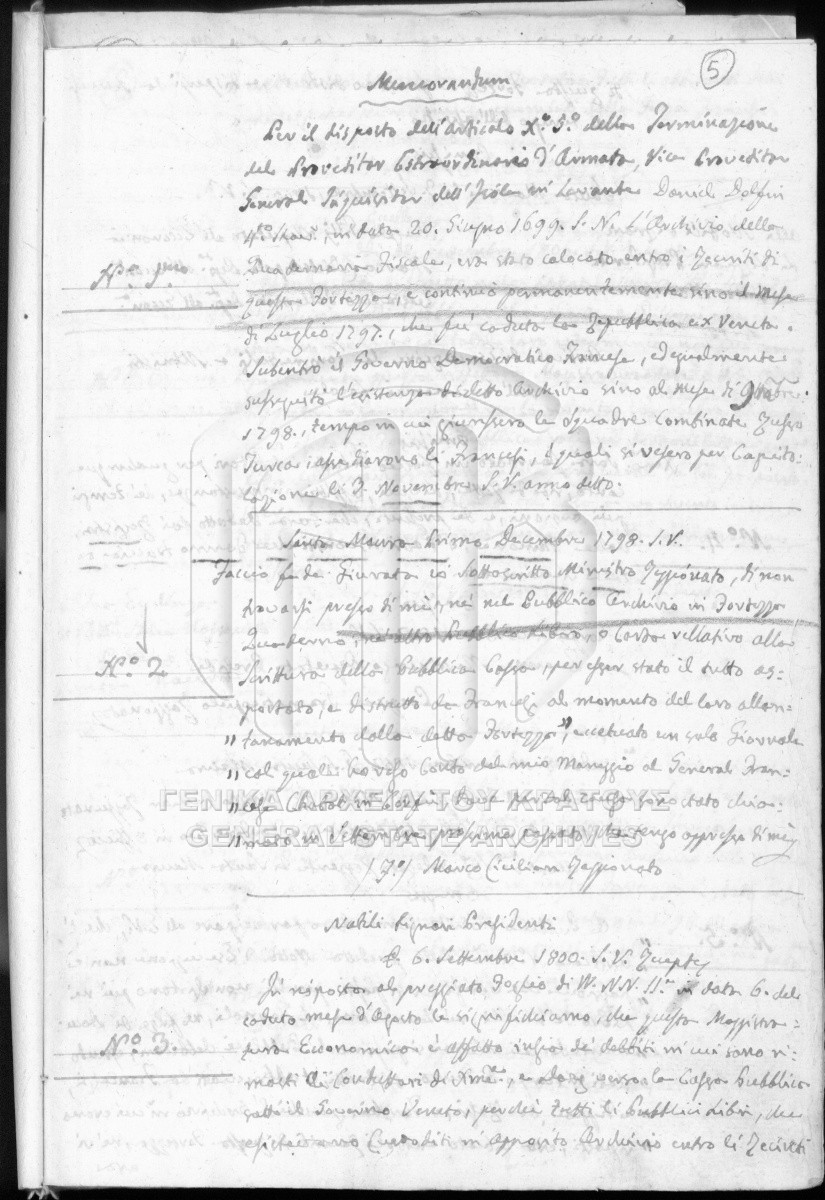 5
Memorandum
Per il disposto dell'Articolo X.° 5.° della Terminazione
del Proveditor Estraordinario d'Armata, Vice Proveditor
General Inquisitor dell'Isole in Levante Daniel Dolfin
4.to in data 20. Giugno 1699. S. N. l'Archivio della
Quadernaria Fiscale, era stato calocato entro i Recinti di
N.° 1.mo
questa Fortezza, e continuò permanentemente sino il Mese
di Luglio 1797., che fù caduta la Repubblica ex Veneta.
Subentrò il Governo Democratico Francese, ed egualmente
susseguitò l'esistenza di detto Archivio sino al Mese di 9ttobre
1798., tempo in cui giunsero le Squadre Combinate Russo
Turca, assediarono li Francesi, i quali si resero per Capito:
lazione li 3. Novembre S. V. anno detto.
Santa Maura Primo Decembre 1798. S. V.
Faccio fede Giurata io Sottoscritto Ministro Raggionato, di non
trovarsi presso di me, nè nel Pubblico Archivio in Fortezza
Quaderno, nè altro Pubblico Libro, o Carta rellativo alla
N.° 2
Scrittura della Pubblica Cassa, per esser stato il tutto as:
portato, e distrutto da Francesi al momento del loro allon:
" tanamento dalla detta Fortezza", eccetuato un solo Giornale
" col quale ho reso Conto del mio Maneggio al General Fran:
" cese Chabot in Corfù
" mato in Settembre prossimo passato che tengo appresso di me
Marco Cicilian Raggionato
ΓΕΝΙΚΑ ΑΡΧΕΙΑ ΤΟΥ ΚΡΑΤΟΥΣ
GENERAL STATE ARCHIVES
Nobili Signori Presidenti
6. Settembre 1800. S. V.
In risposta al preggiato Foglio di W. N. N. Il.e in data 6. del
caduto mese d'Agosto le significhiamo, che questa Maggistra:
N.° 3.
tura Economica è affatto inscia de debbiti in cui sono ri:
masti li Conduttori di verso la Cassa Pubblica
sotto il Governo Veneto, perchè tutti li Pubblici Libri, che
esistevano Custoditi in apposito Archivio entro li Recinti